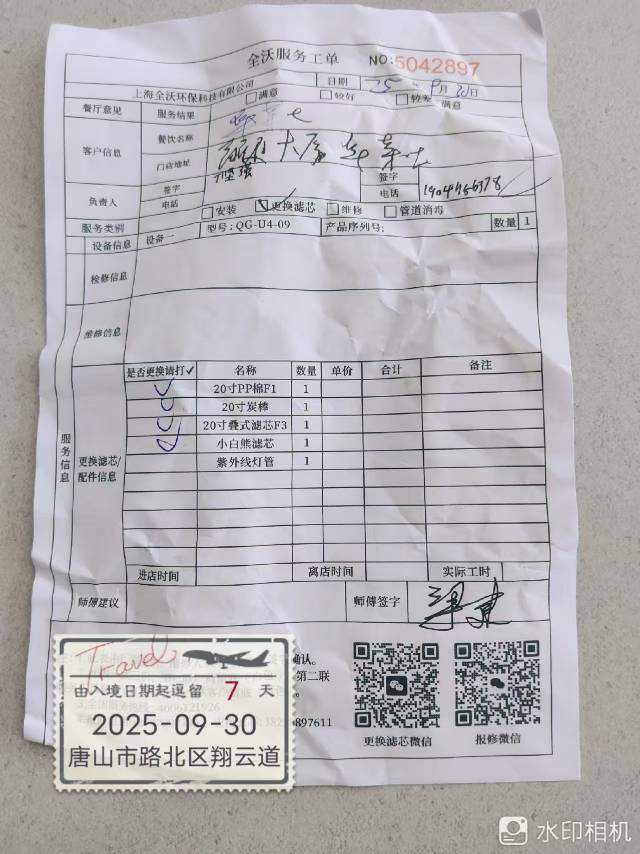 全沃服务工单
NO:5042897
上海全沃环保科技有限公司
日期 25年9月30日
餐厅意见 服务结果 满意 较好 较差 满意
客户信息 餐饮名称
门店地址
负责人 签字 电话 签字 电话
服务类别 安装 更换滤芯 维修 管道消毒
设备信息 设备一 型号:QG-U4-09 产品序列号: 数量 1
检修信息
维修信息
服务信息
更换滤芯/配件信息
是否更换请打✓ 名称 数量 单价 合计 备注
✓ 20寸PP棉F1 1
✓ 20寸炭棒 1
✓ 20寸叠式滤芯F3 1
✓ 小白熊滤芯 1
紫外线灯管 1
进店时间 离店时间 实际工时
师傅建议 师傅签字
确认。
第二联
97611
更换滤芯微信 报修微信
Travel
由入境日期起逗留 7 天
2025-09-30
唐山市路北区翔云道
水印相机